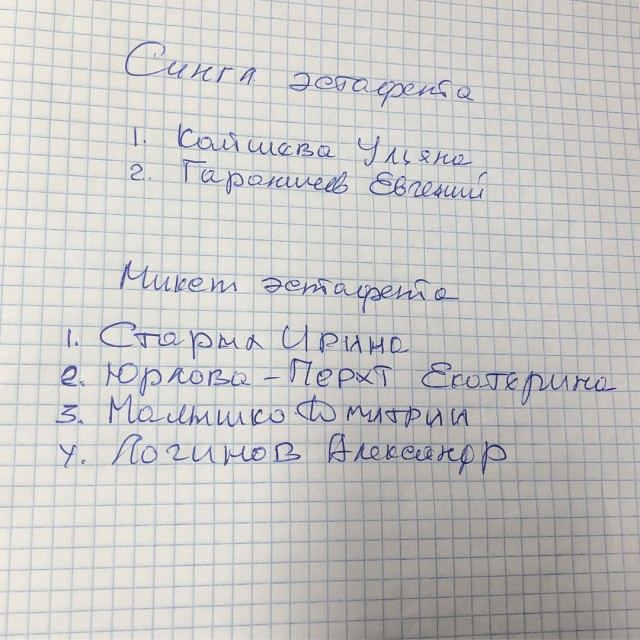 Сингл эстафета
1. Кайшева Ульяна
2. Гараничев Евгений
Микст эстафета
1. Старых Ирина
2. Юрлова-Перхт Екатерина
3. Малышко Дмитрий
4. Логинов Александр